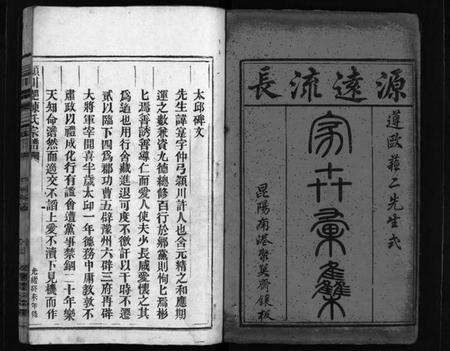 源遠流長
遵歐蘇二先生式
家乘彙集
昆陽南港聚英齋鋟板
太邱碑文
先生諱寔字仲弓潁川許人也含元精之和應期
運之數兼資九德總修百行於鄉黨則恂匕焉彬
匕焉善誘善導仁而愛人使夫少長咸感懷之其
為道也用行舍藏進退可度不徼訐以干時不遷
貳以臨下四為郡功曹五辟豫州六辟三府再辟
大將軍宰聞喜半歲太邱一年德務中庸教敦不
肅政以禮成化行有謐會遭黨事禁錮二十年樂
天知命澹然而適交不諂上愛不瀆下見機而作
潁川郡陳氏宗譜
光緒癸未年修